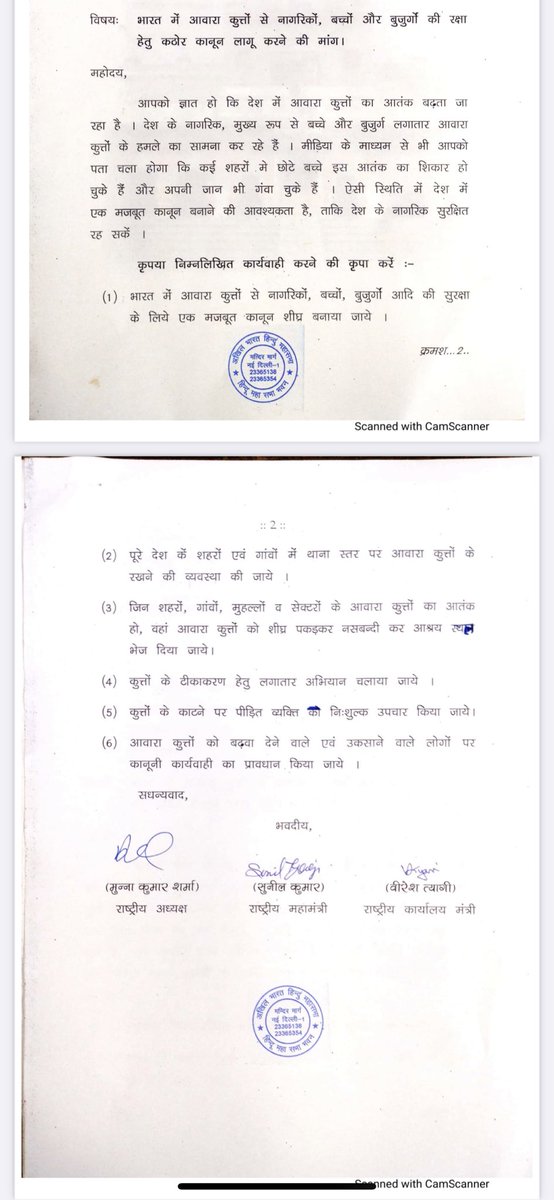 विषयः भारत में आवारा कुत्तों से नागरिकों, बच्चों और बुजुर्गो की रक्षा
हेतु कठोर कानून लागू करने की मांग।
महोदय,
आपको ज्ञात हो कि देश में आवारा कुत्तों का आतंक बढ़ता जा
रहा है । देश के नागरिक, मुख्य रूप से बच्चे और बुजुर्ग लगातार आवारा
कुत्तों के हमले का सामना कर रहे हैं । मीडिया के माध्यम से भी आपको
पता चला होगा कि कई शहरों मे छोटे बच्चे इस आतंक का शिकार हो
चुके हैं और अपनी जान भी गंवा चुके हैं । ऐसी स्थिति में देश में
एक मजबूत कानून बनाने की आवश्यकता है, ताकि देश के नागरिक सुरक्षित
रह सकें ।
कृपया निम्नलिखित कार्यवाही करने की कृपा करें :-
(1) भारत में आवारा कुत्तों से नागरिकों, बच्चों, बुजुर्गो आदि की सुरक्षा
के लिये एक मजबूत कानून शीघ्र बनाया जाये ।
क्रमश...2..
अखिल भारत हिन्दू महासभा
मन्दिर मार्ग
नई दिल्ली-1
23365138
23365354
हिन्दू महा सभा भवन
Scanned with CamScanner
:: 2 ::
(2) पूरे देश कें शहरों एवं गांवों में थाना स्तर पर आवारा कुत्तों के
रखने की व्यवस्था की जाये ।
(3) जिन शहरों, गांवों, मुहल्लों व सेक्टरों के आवारा कुत्तों का आतंक
हो, वहां आवारा कुत्तों को शीघ्र पकड़कर नसबन्दी कर आश्रय स्थल
भेज दिया जाये।
(4) कुत्तों के टीकाकरण हेतु लगातार अभियान चलाया जाये ।
(5) कुत्तों के काटने पर पीड़ित व्यक्ति को निःशुल्क उपचार किया जाये।
(6) आवारा कुत्तों को बढ़वा देने वाले एवं उकसाने वाले लोगों पर
कानूनी कार्यवाही का प्रावधान किया जाये ।
सधन्यवाद,
भवदीय,
(मुन्ना कुमार शर्मा) (सुनील कुमार) (वीरेश त्यागी)
राष्ट्रीय अध्यक्ष राष्ट्रीय महामंत्री राष्ट्रीय कार्यालय मंत्री
अखिल भारत हिन्दू महासभा
मन्दिर मार्ग
नई दिल्ली-1
23365138
23365354
हिन्दू महा सभा भवन
Scanned with CamScanner